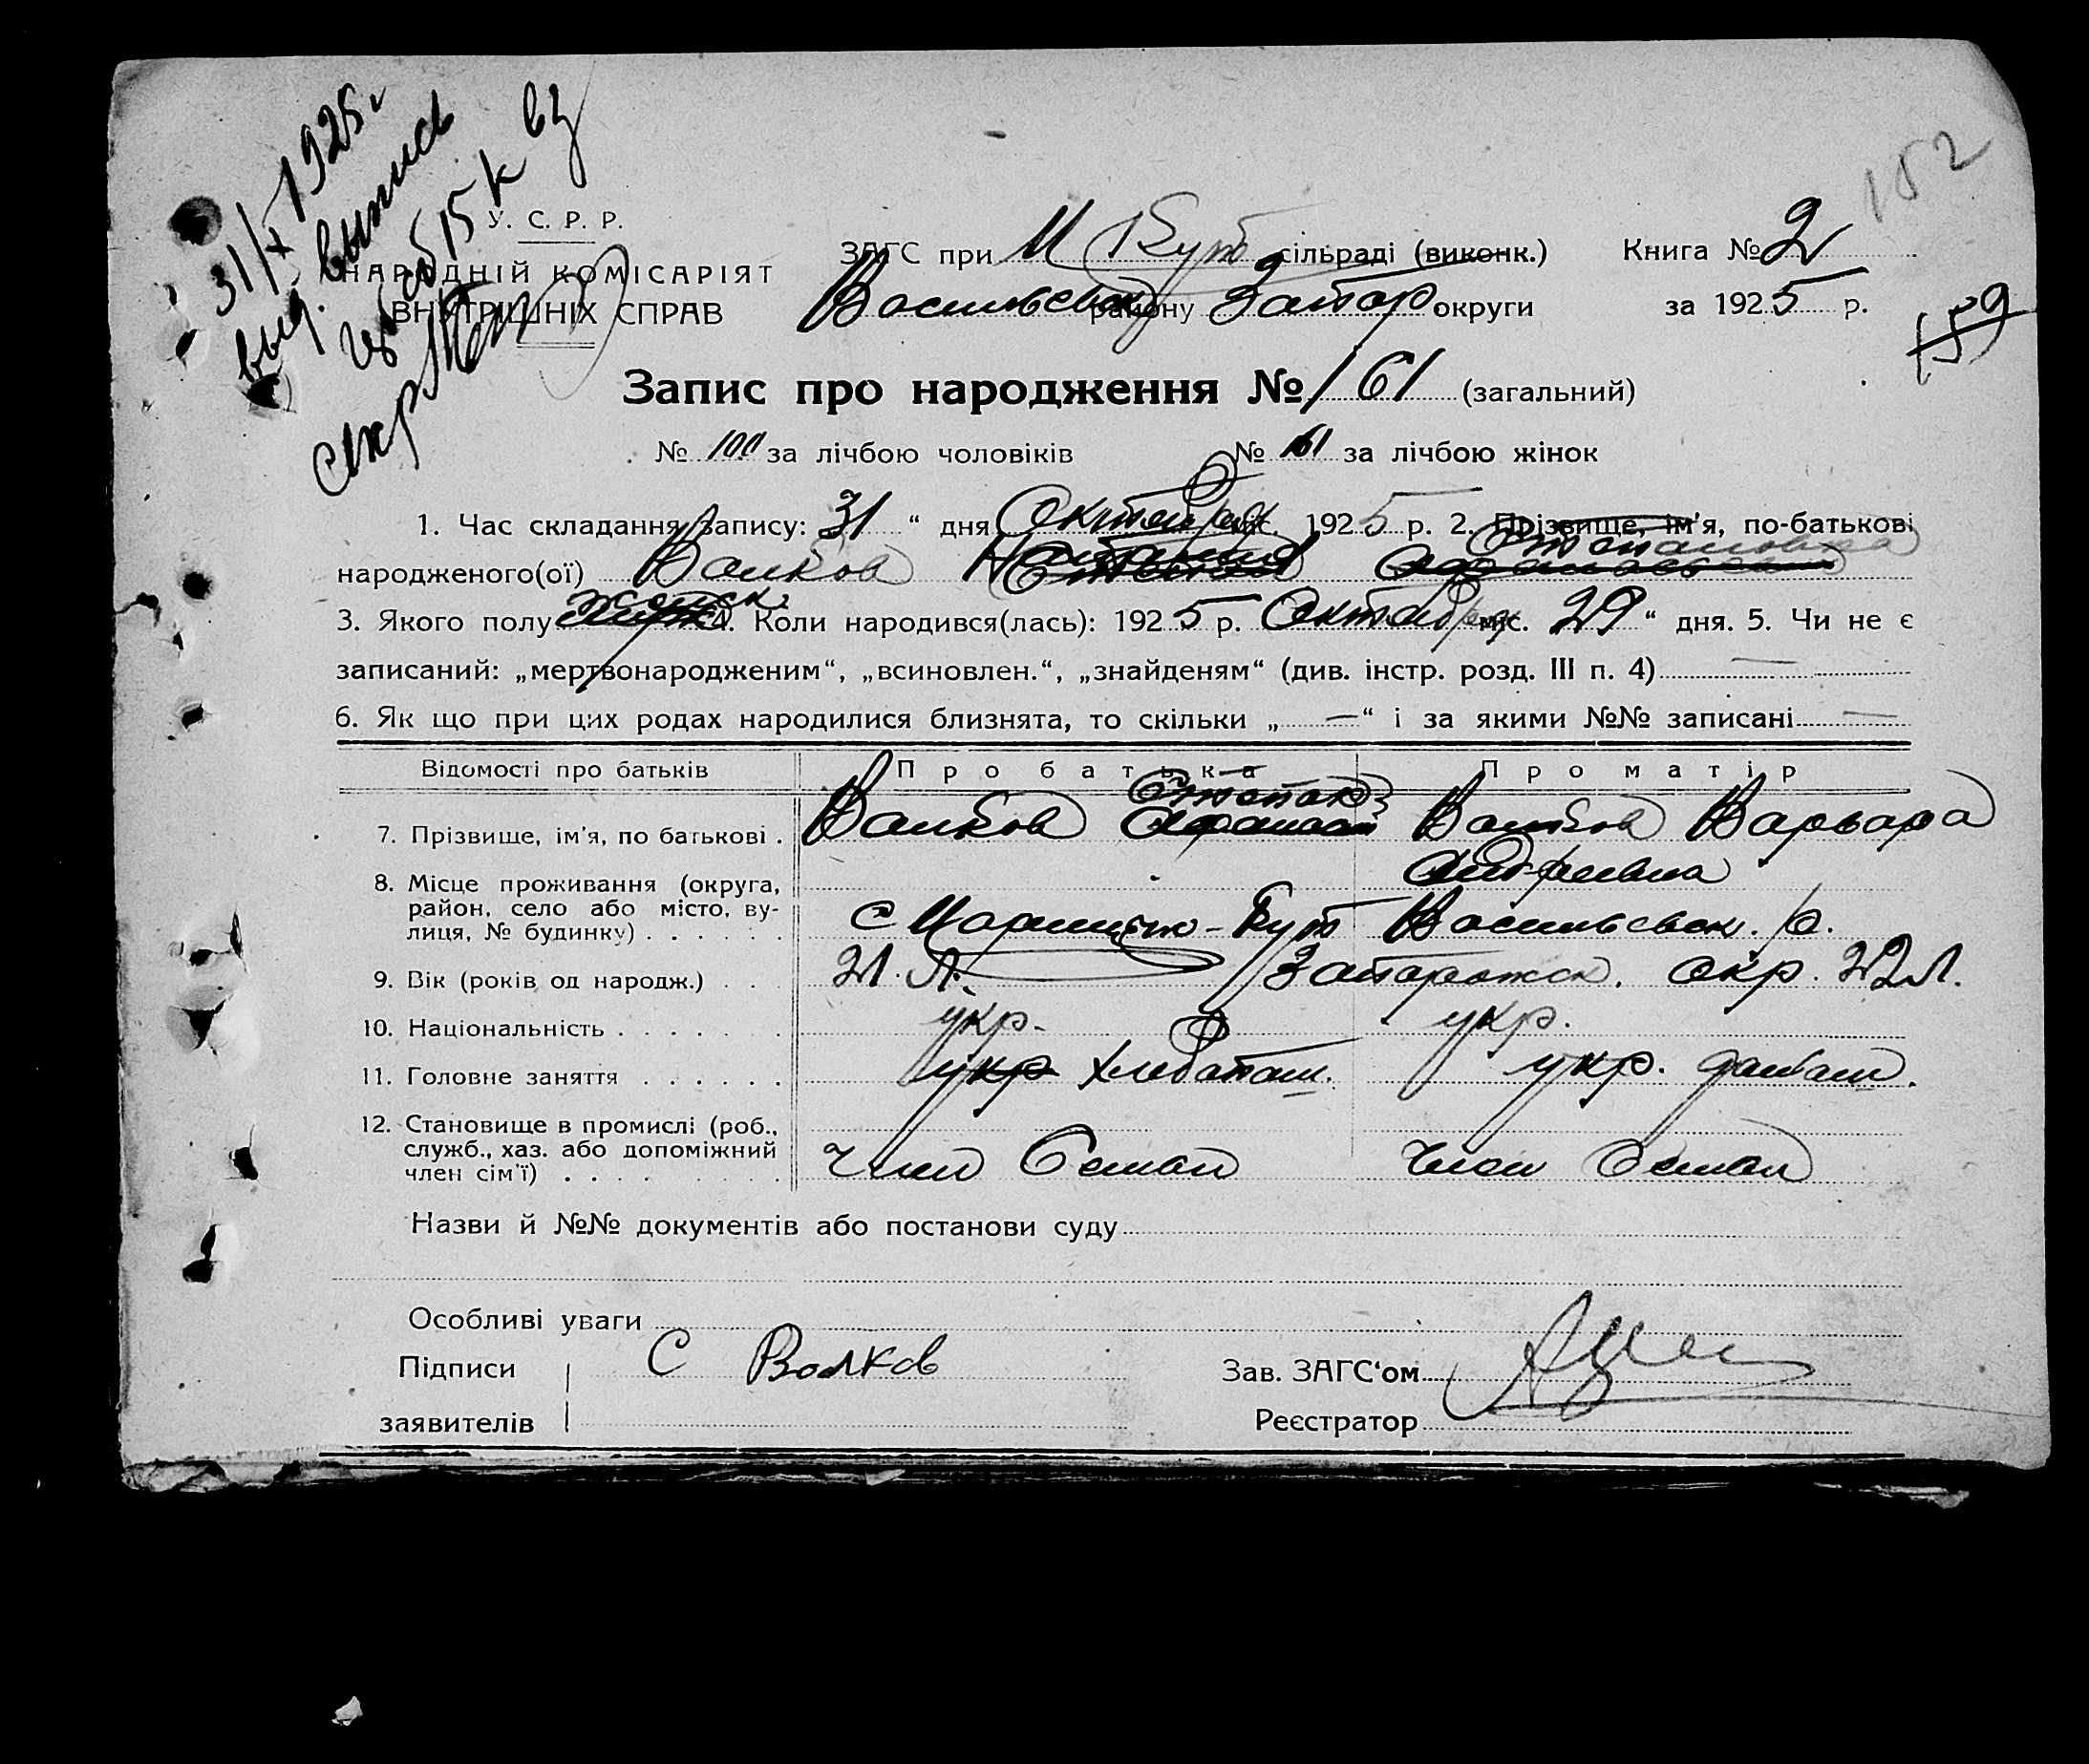 31/X 1925 г
выд. выпись
15 к
152
У. С. Р. Р.
НАРОДНІЙ КОМІСАРІЯТ
ВНУТРІШНІХ СПРАВ
ЗАГС при М Кут сільраді (виконк.) Книга № 2
Васильевск району Запор округи за 1925 р.
159
Запис про народження № 161 (загальний)
№ 100 за лічбою чоловіків № 61 за лічбою жінок
1. Час складання запису: 31 “ дня Октября міс. 1925 р. 2. Прізвище, ім'я, по-батькові
Степановна
народженого(ої) Валкова
женск.
3. Якого полу 4. Коли народився(лась): 1925 р. Октября міс. 29 “ дня. 5. Чи не є
записаний: „мертвонародженим“, „всиновлен.“, „знайденям“ (див. інстр. розд. III п. 4) —
6. Як що при цих родах народилися близнята, то скільки „ — “ і за якими №№ записані —
Відомості про батьків Про батька Про матір
Степан
7. Прізвище, ім'я, по батькові . Валков Афанас Валкова Варвара
Андреевна
8. Місце проживання (округа,
район, село або місто, ву-
лиця, № будинку) . . . . . . с Маричино-Кут Васильевск. р.
9. Вік (років од народж.) . . . 21. л. Запорожск. окр. 22 л.
10. Національність . . . . . . укр. укр.
11. Головне заняття . . . . . . укр хлебопаш. укр. домаш.
12. Становище в промислі (роб.,
служб., хаз. або допоміжний
член сім'ї) . . . . . . . . Член Семьи Член Семьи
Назви й №№ документів або постанови суду
Особливі уваги
Підписи С Волков Зав. ЗАГС‘ом
заявителів Реєстратор